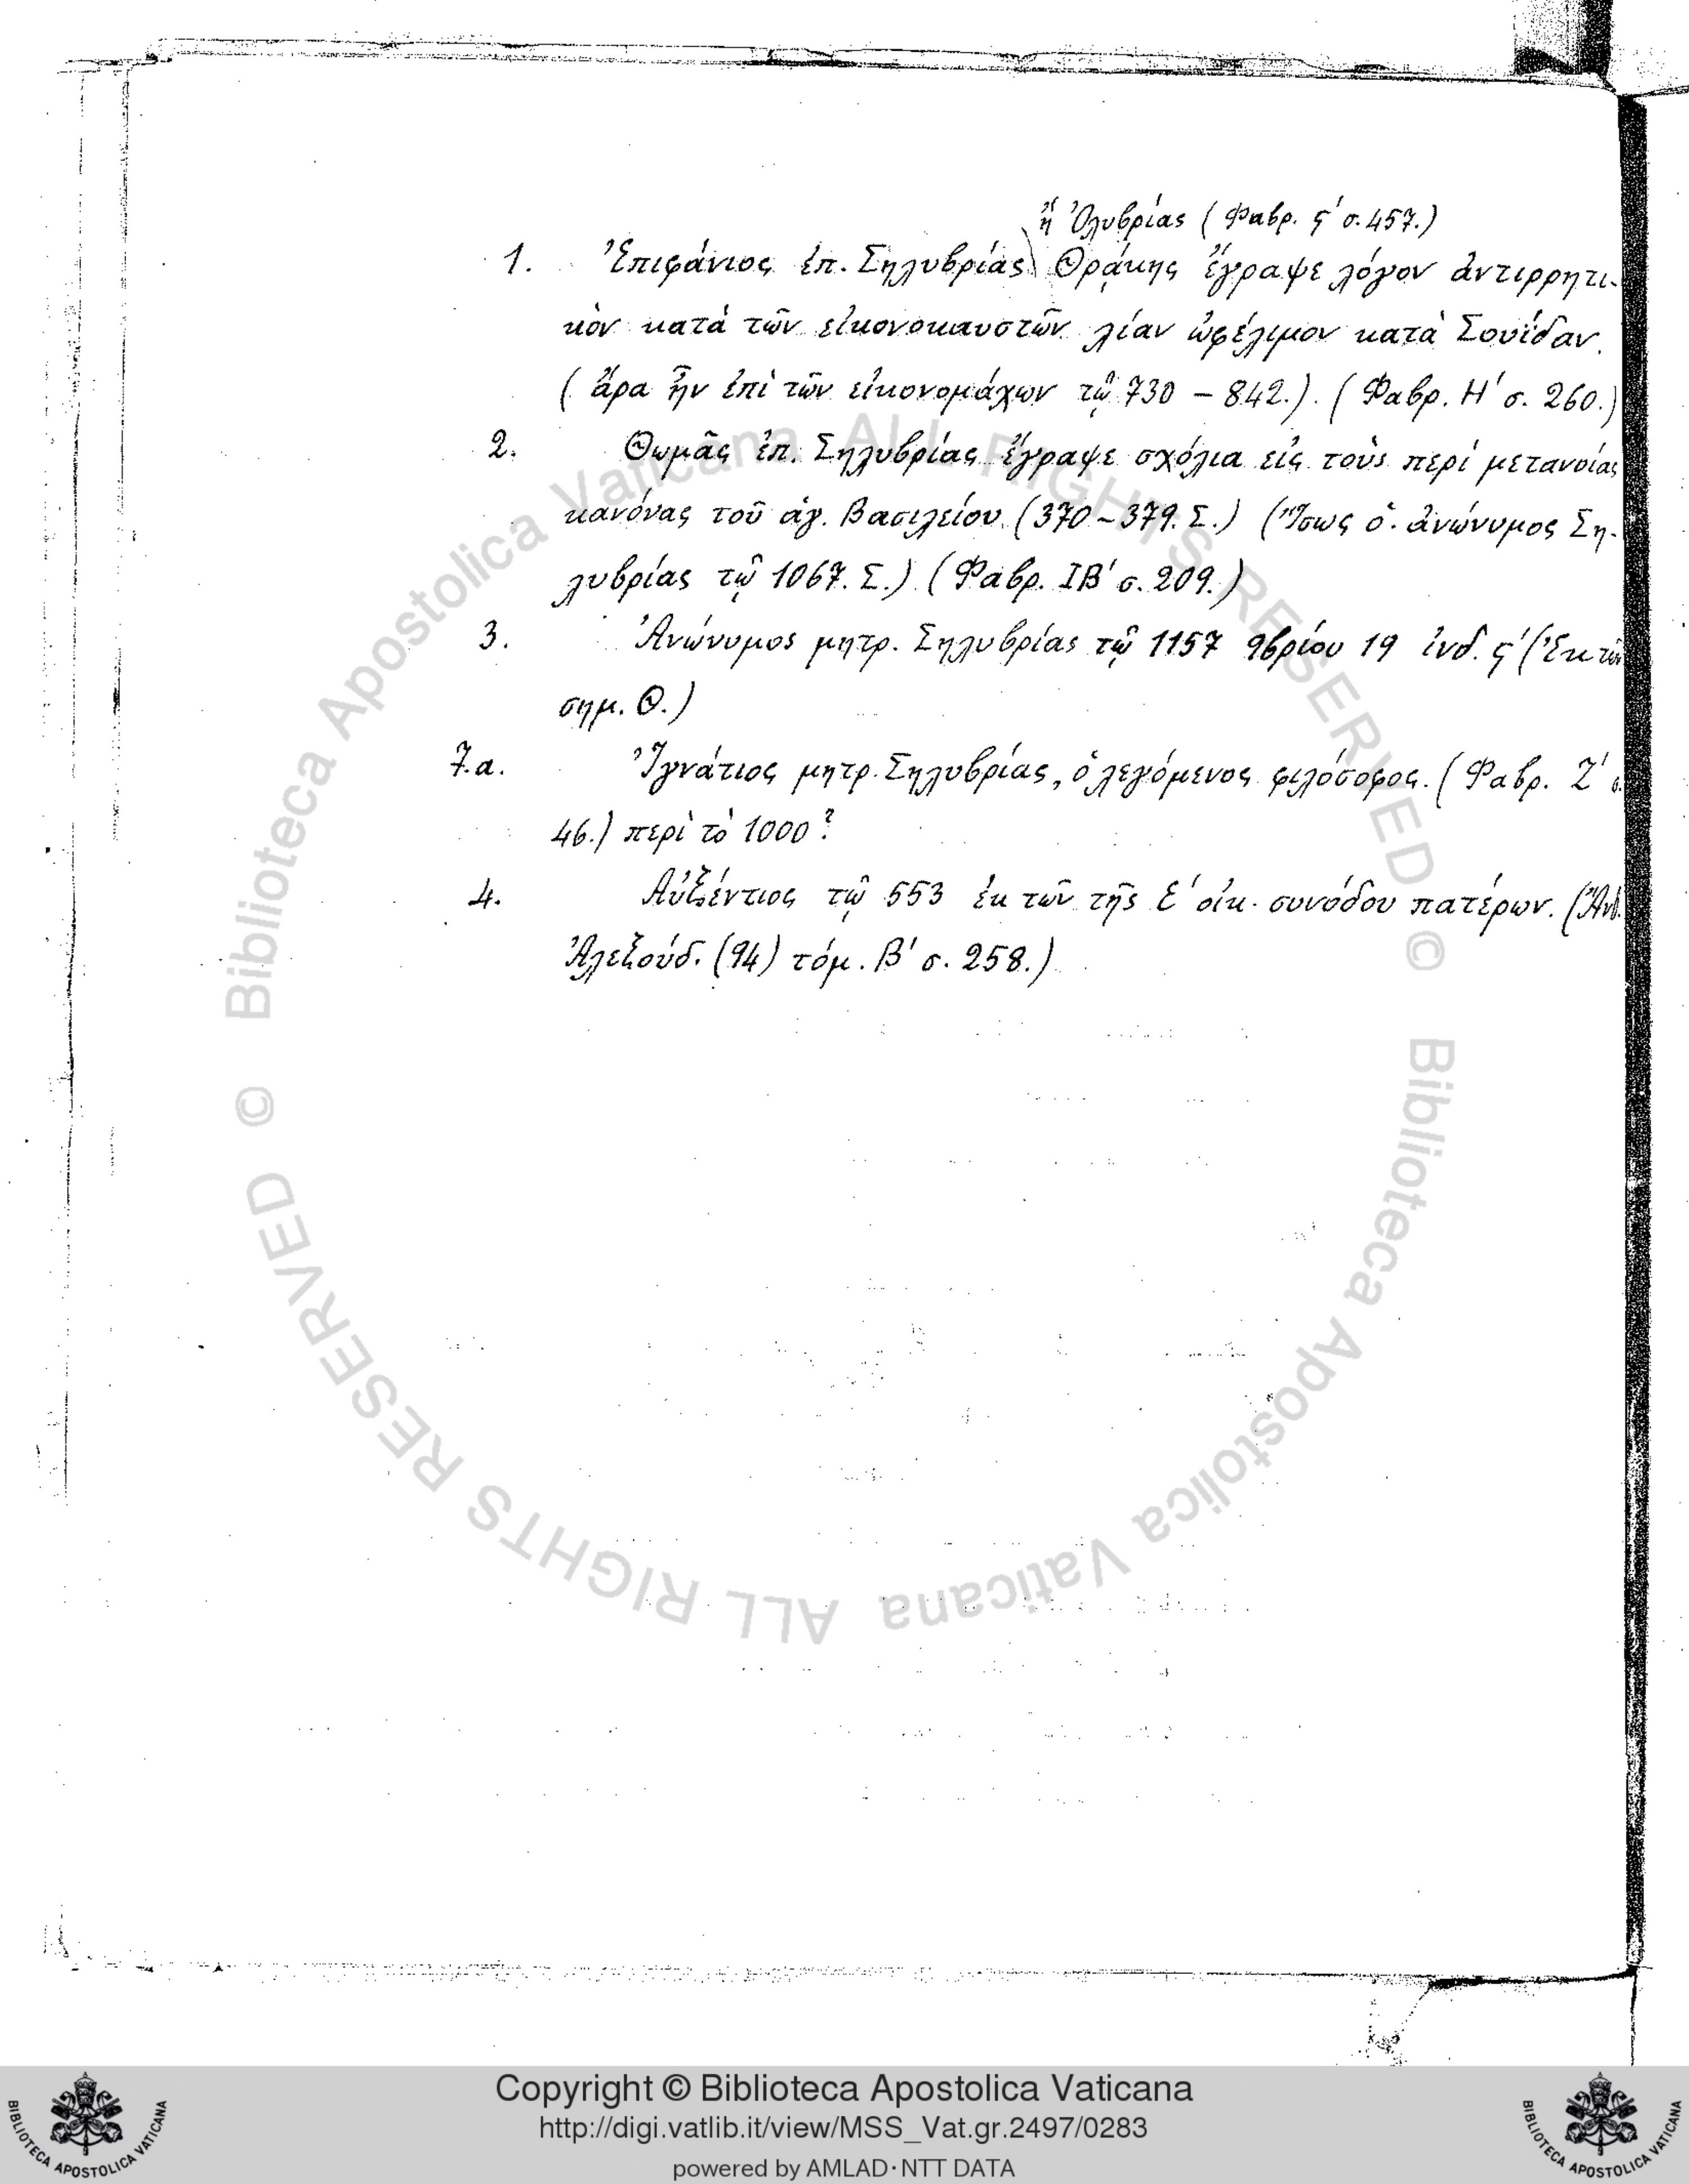 ἢ Ὀλυβρίας (Φαβρ. ϛ΄ σ. 457.)
1. Ἐπιφάνιος ἐπ. Σηλυβρίας Θράκης ἔγραψε λόγον ἀντιρρητι-
κὸν κατὰ τῶν εἰκονοκαυστῶν λίαν ὠφέλιμον κατὰ Σουΐδαν.
(ἄρα ἦν ἐπὶ τῶν εἰκονομάχων τῷ 730 – 842.). (Φαβρ. Η΄ σ. 260.)
2. Θωμᾶς ἐπ. Σηλυβρίας ἔγραψε σχόλια εἰς τοὺς περὶ μετανοίας
κανόνας τοῦ ἁγ. Βασιλείου (370 – 379. Σ.) (Ἴσως ὁ ἀνώνυμος Ση-
λυβρίας τῷ 1067. Σ.) (Φαβρ. ΙΒ΄ σ. 209.)
3. Ἀνώνυμος μητρ. Σηλυβρίας τῷ 1157 9βρίου 19 ἰνδ. ϛ΄ (Ἐκ τῶν
σημ. Θ.)
7.α. Ἰγνάτιος μητρ. Σηλυβρίας, ὁ λεγόμενος φιλόσοφος. (Φαβρ. Ζ΄ σ.
46.) περὶ τὸ 1000?
4. Αὐξέντιος τῷ 553 ἐκ τῶν τῆς Ε΄ οἰκ. συνόδου πατέρων. (Ἀνθ.
Ἀλεξούδ. (94) τόμ. Β΄ σ. 258.)
© Biblioteca Apostolica Vaticana ALL RIGHTS RESERVED
© Biblioteca Apostolica Vaticana ALL RIGHTS RESERVED
Copyright © Biblioteca Apostolica Vaticana
http://digi.vatlib.it/view/MSS_Vat.gr.2497/0283
powered by AMLAD·NTT DATA
BIBLIOTECA APOSTOLICA VATICANA
BIBLIOTECA APOSTOLICA VATICANA